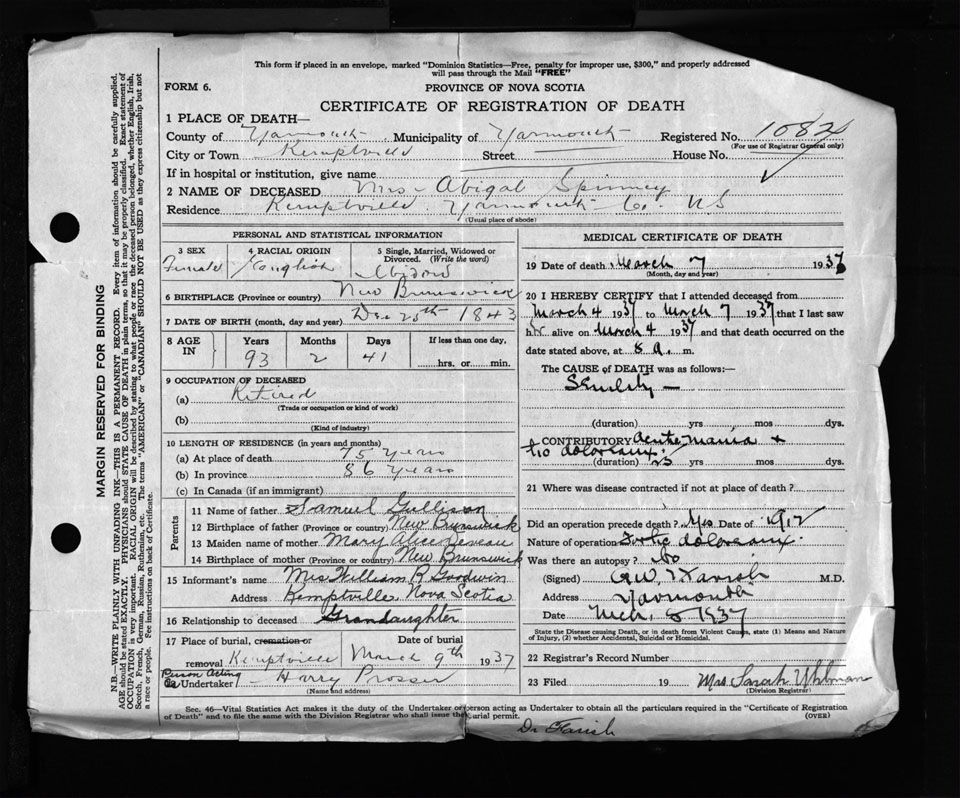 This form if placed in an envelope, marked "Dominion Statistics—Free, penalty for improper use, $300," and properly addressed
will pass through the Mail "FREE"
FORM 6.
PROVINCE OF NOVA SCOTIA
CERTIFICATE OF REGISTRATION OF DEATH
MARGIN RESERVED FOR BINDING
N.B.—WRITE PLAINLY WITH UNFADING INK—THIS IS A PERMANENT RECORD. Every item of information should be carefully supplied.
AGE should be stated EXACTLY. PHYSICIANS should STATE CAUSE OF DEATH in plain terms, so that it may be properly classified. Exact statement of
OCCUPATION is very important. RACIAL ORIGIN will be described by stating to what people or race the deceased person belonged, whether English, Irish,
Scotch, French, German, Russian, Ruthenian, etc. The terms "AMERICAN" or "CANADIAN" SHOULD NOT BE USED as they express citizenship but not
a race or people. Fee instructions on back of Certificate.
1 PLACE OF DEATH—
County of Yarmouth Municipality of Yarmouth Registered No. 1082
(For use of Registrar General only)
City or Town Kemptville Street House No.
If in hospital or institution, give name
2 NAME OF DECEASED Mrs- Abigal Spinney
Residence Kemptville Yarmouth Co. N.S
(Usual place of abode)
PERSONAL AND STATISTICAL INFORMATION
3 SEX
4 RACIAL ORIGIN
5 Single, Married, Widowed or
Divorced. (Write the word)
Female English Widow
6 BIRTHPLACE (Province or country) New Brunswick
7 DATE OF BIRTH (month, day and year) Dec 25th 1843
8 AGE
IN
Years Months Days If less than one day,
93 2 41 hrs. or min.
9 OCCUPATION OF DECEASED
(a) Retired
(Trade or occupation or kind of work)
(b)
(Kind of industry)
10 LENGTH OF RESIDENCE (in years and months)
(a) At place of death 75 years
(b) In province 86 years
(c) In Canada (if an immigrant)
Parents
11 Name of father Samuel Gullison
12 Birthplace of father (Province or country) New Brunswick
13 Maiden name of mother Mary Alice
14 Birthplace of mother (Province or country) New Brunswick
15 Informant's name Mrs William R Goodwin
Address Kemptville Nova Scotia
16 Relationship to deceased Grandaughter
17 Place of burial, cremation or Date of burial
removal Kemptville March 9th 1937
Person Acting
as Undertaker - Harry Prosser
(Name and address)
MEDICAL CERTIFICATE OF DEATH
19 Date of death March 7 1937
(Month, day and year)
20 I HEREBY CERTIFY that I attended deceased from
March 4 1937 to March 7 1937 that I last saw
her alive on March 4 1937 and that death occurred on
date stated above, at 8 a. m.
The CAUSE of DEATH was as follows:—
Senility —
(duration) yrs mos dys.
CONTRIBUTORY Acute mania &
tic doloreaux.
(duration) 25 yrs mos dys.
21 Where was disease contracted if not at place of death?
Did an operation precede death? Yes Date of 1912
Nature of operation doloreaux.
Was there an autopsy? No
(Signed) G.W.T. Farish M.D.
Address Yarmouth
Date Mch. 8 1937
State the Disease causing Death, or in death from Violent Causes, state (1) Means and Nature
of Injury, (2) whether Accidental, Suicidal or Homicidal.
22 Registrar's Record Number
23 Filed 19 Mrs. Sarah Uhlman
(Division Registrar)
Sec. 46—Vital Statistics Act makes it the duty of the Undertaker or person acting as Undertaker to obtain all the particulars required in the "Certificate of Registration
of Death" and to file the same with the Division Registrar who shall issue the burial permit. (OVER)
Dr Farish